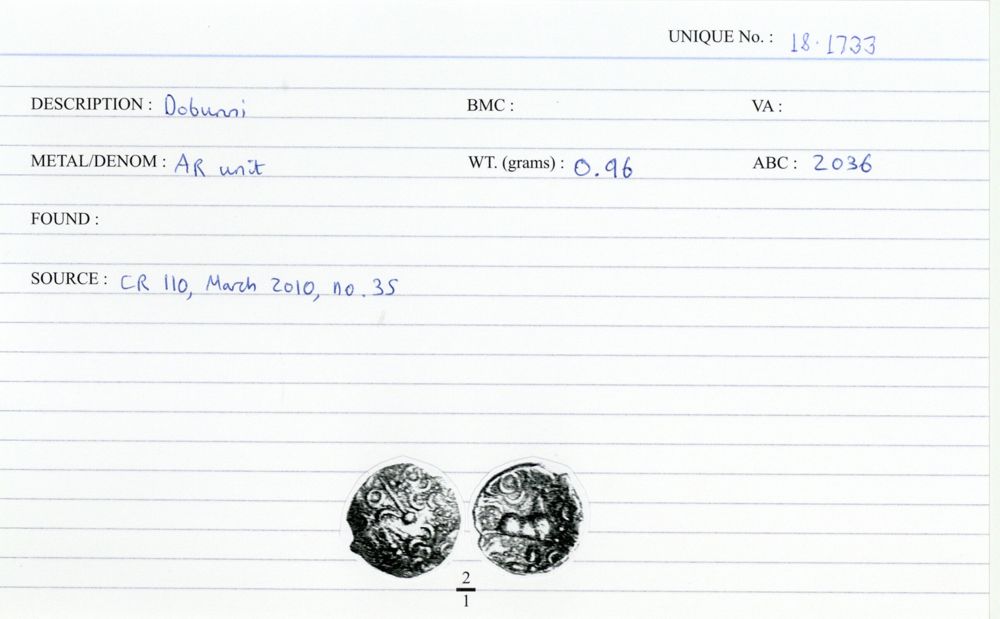 UNIQUE No. : 18.1733
DESCRIPTION : Dobunni BMC : VA :
METAL/DENOM : AR unit WT. (grams) : 0.96 ABC : 2036
FOUND :
SOURCE : CR 110, March 2010, no. 35
2
1